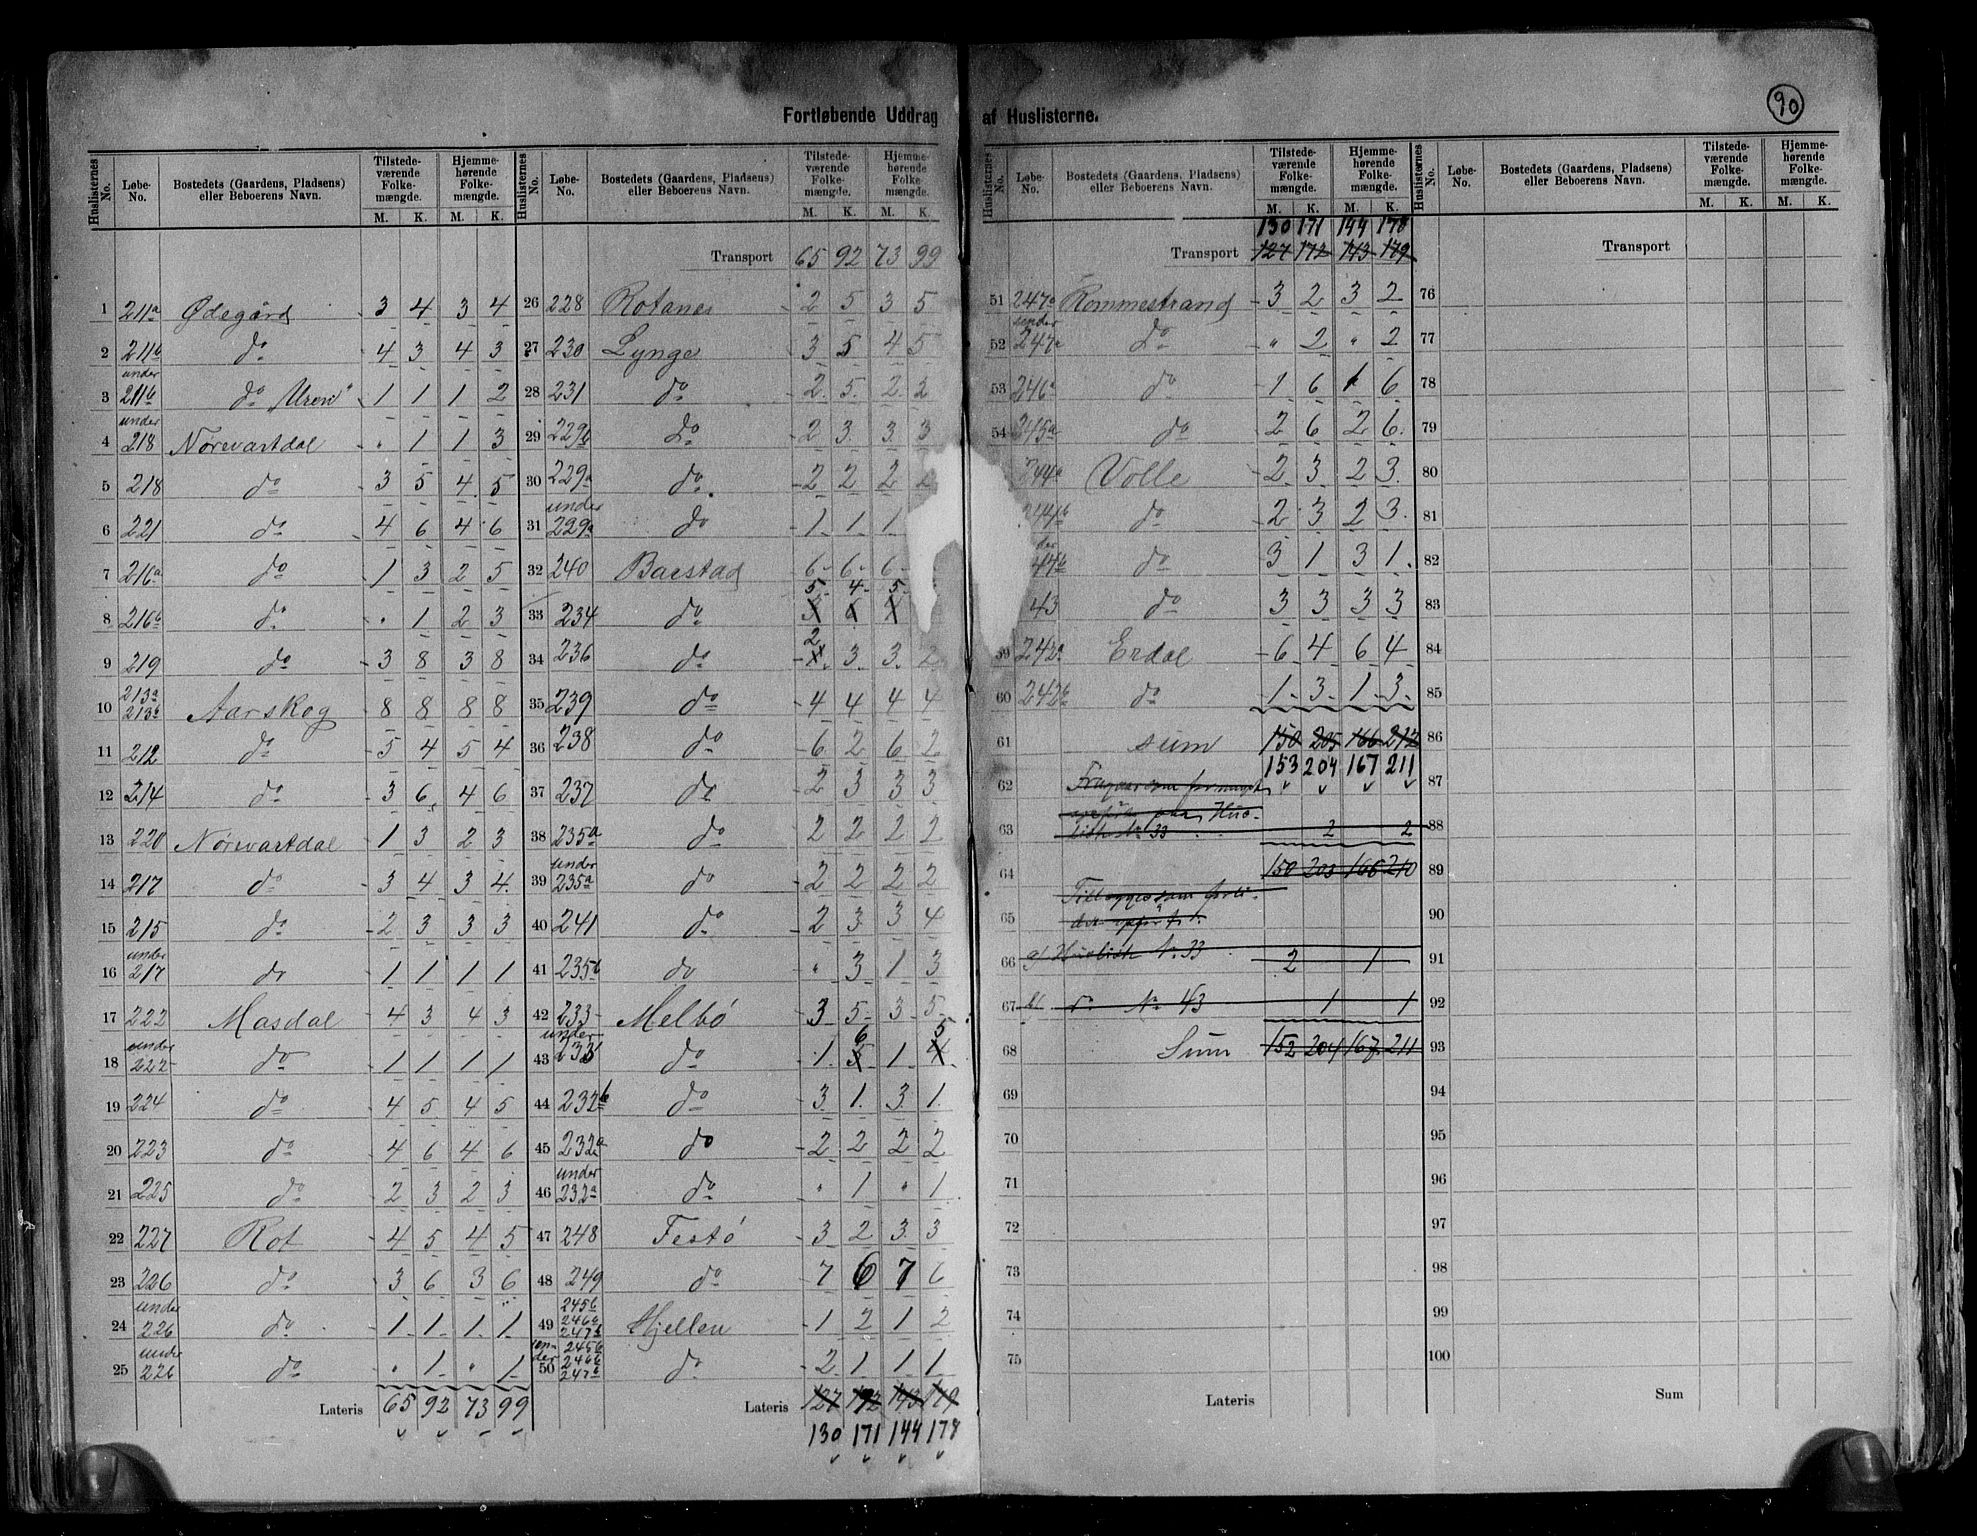 Fortløbende Uddrag af Huslisterne.
90
Huslisternes No. Løbe-No. Bostedets (Gaardens, Pladsens) eller Beboerens Navn. Tilstedeværende Folkemængde. M. K. Hjemmehørende Folkemængde. M. K.
1 211a Ødegård 3 4 3 4
2 211b do 4 3 4 3
3 under 211b do „Uren" 1 1 1 2
4 under 218 Nørevartdal " 1 1 3
5 218 do 3 5 4 5
6 221 do 4 6 4 6
7 216a do 1 3 2 5
8 216b do " 1 2 3
9 219 do 3 8 3 8
10 213a 213b Aarskog 8 8 8 8
11 212 do 5 4 5 4
12 214 do 3 6 4 6
13 220 Nørevartdal 1 3 2 3
14 217 do 3 4 3 4
15 215 do 2 3 3 3
16 under 217 do 1 1 1 1
17 222 Masdal 4 3 4 3
18 under 222 do 1 1 1 1
19 224 do 4 5 4 5
20 223 do 4 6 4 6
21 225 do 2 3 2 3
22 227 Rot 4 5 4 5
23 226 do 3 6 3 6
24 under 226 do 1 1 1 1
25 under 226 do " 1 " 1
Lateris 65 92 73 99
Huslisternes No. Løbe-No. Bostedets (Gaardens, Pladsens) eller Beboerens Navn. Tilstedeværende Folkemængde. M. K. Hjemmehørende Folkemængde. M. K.
Transport 65 92 73 99
26 228 Rotanes 2 5 3 5
27 230 Lynge 3 5 4 5
28 231 do 2 5 2 2
29 229b do 2 3 3 3
30 229a do 2 2 2
31 under 229a do 1 1 1
32 240 Baestad 6 6 6
5 4 5
33 234 do
34 236 do 2 3 3 2
35 239 do 4 4 4 4
36 238 do 6 2 6 2
37 237 do 2 3 3 3
38 235a do 2 2 2 2
39 under 235a do 2 2 2 2
40 241 do 2 3 3 4
41 235b do " 3 1 3
42 233 Melbö 3 5 3 5
6 5
43 under 233 do 1 5 1 4
44 232b do 3 1 3 1
45 232a do 2 2 2 2
46 under 232a do " 1 " 1
47 248 Festö 3 2 3 3
48 249 do 7 6 7 6
49 245b 246b 247b Hjellen 1 2 1 2
50 under 245b 246b 247b do 2 1 1 1
Lateris 127 172 143 179
130 171 144 178
Huslisternes No. Løbe-No. Bostedets (Gaardens, Pladsens) eller Beboerens Navn. Tilstedeværende Folkemængde. M. K. Hjemmehørende Folkemængde. M. K.
130 171 144 178
Transport 127 172 143 179
51 247a Rommestrand 3 2 3 2
52 under 247a do " 2 " 2
53 246a do 1 6 1 6
54 245a do 2 6 2 6
244a Volle 2 3 2 3
244b do 2 3 2 3
do 3 1 3 1
43 do 3 3 3 3
59 242a Erdal 6 4 6 4
60 242b do 1 3 1 3
61 Sum 150 205 166 212
153 204 167 211
62
63 Huslisten No 33 2 2
64 150 203 166 210
65
66 a/ Huslisten No 33 2 1
67 b/ do No 43 1 1
68 Sum 152 204 167 211
69
70
71
72
73
74
75
Lateris
Huslisternes No. Løbe-No. Bostedets (Gaardens, Pladsens) eller Beboerens Navn. Tilstedeværende Folkemængde. M. K. Hjemmehørende Folkemængde. M. K.
Transport
76
77
78
79
80
81
82
83
84
85
86
87
88
89
90
91
92
93
94
95
96
97
98
99
100
Sum